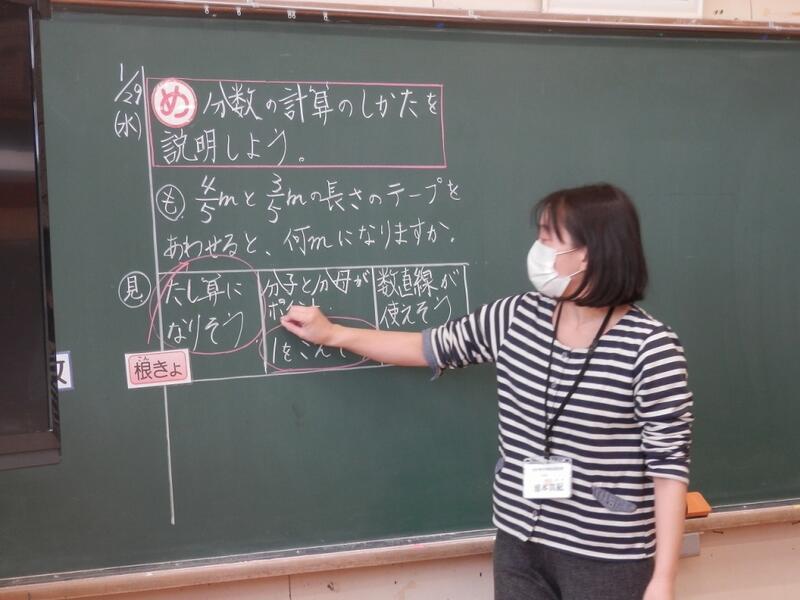 1/29
(水)
め 分数の計算のしかたを
説明しよう。
も 4/5mと3/5mの長さのテープを
あわせると、何mになりますか。
見
たし算に
なりそう
分子と分母が
ポイント
1をこえ
数直線が
使えそう
根きょ